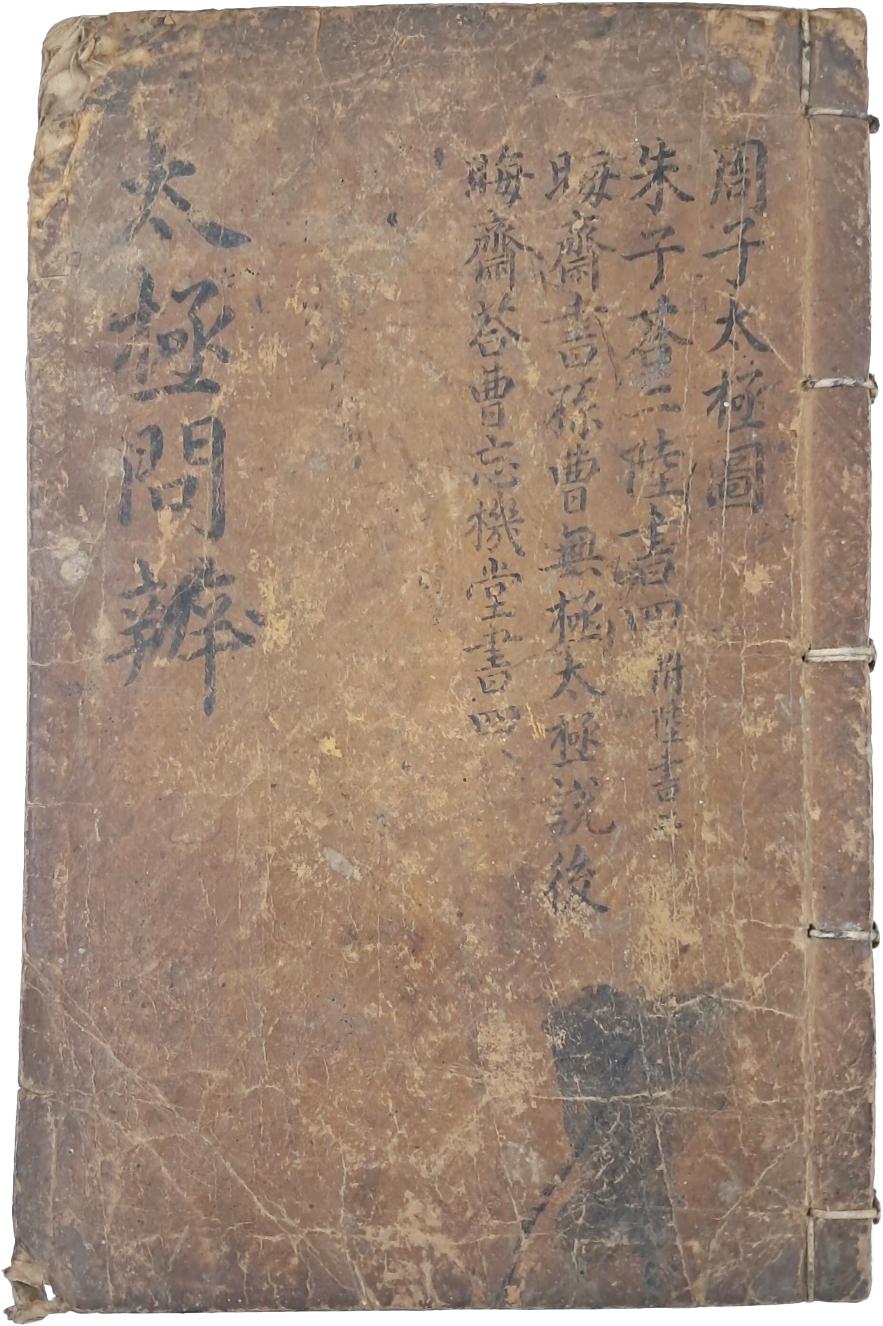 周子太極圖
朱子荅二陸書四 附陸書
晦齋書孫曹無極太極說後
晦齋荅曹忘機堂書四
太極問辨